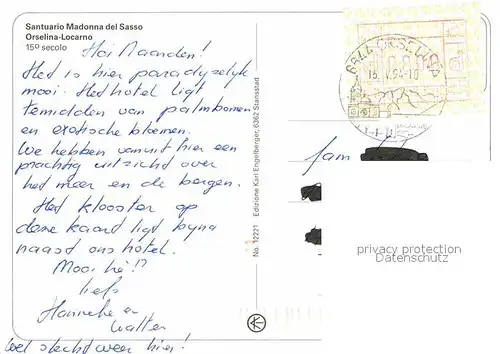 Santuario Madonna del Sasso
Orselina-Locarno
15º secolo
Hoi Naanden!
Het is hier paradijselijk
mooi. Het hotel ligt
temidden van palmbomen
en exotische bloemen.
We hebben vanuit hier een
prachtig uitzicht over
het meer en de bergen.
Het klooster op
deze kaart ligt bijna
naast ons hotel.
Mooi hè!?
liefs
Hanneke en
Walter
wel slecht weer hier!
No. 12221 Edizione Karl Engelberger, 6362 Stansstad
6644 ORSELINA
Fam
privacy protection
Datenschutz